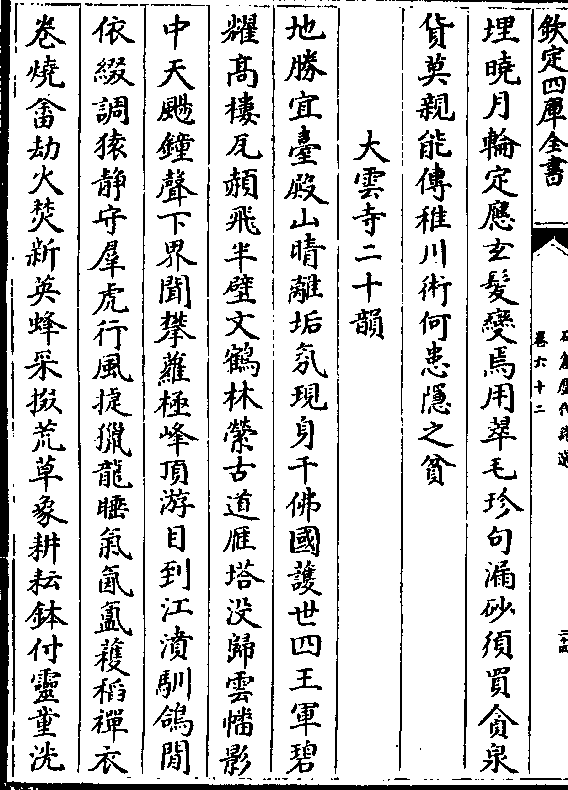 欽定四庫全書
卷六十二
埋曉月輪定應玄髮變焉用翠毛珍句漏砂須買貪泉
貨莫親能傳稚川術何患隱之貧
大雲寺二十韻
地勝宜臺殿山晴離垢氛現身千佛國護世四王軍碧
耀高樓瓦赬飛半壁文鶴林縈古道雁塔没歸雲幡影
中天颺鐘聲下界聞攀蘿極峰頂游目到江濆馴鴿閒
依綴調猿静守羣虎行風捷獵龍睡氣氤氲穫稻禪衣
卷燒畲劫火焚新英蜂采掇荒草象耕耘鉢付靈童洗